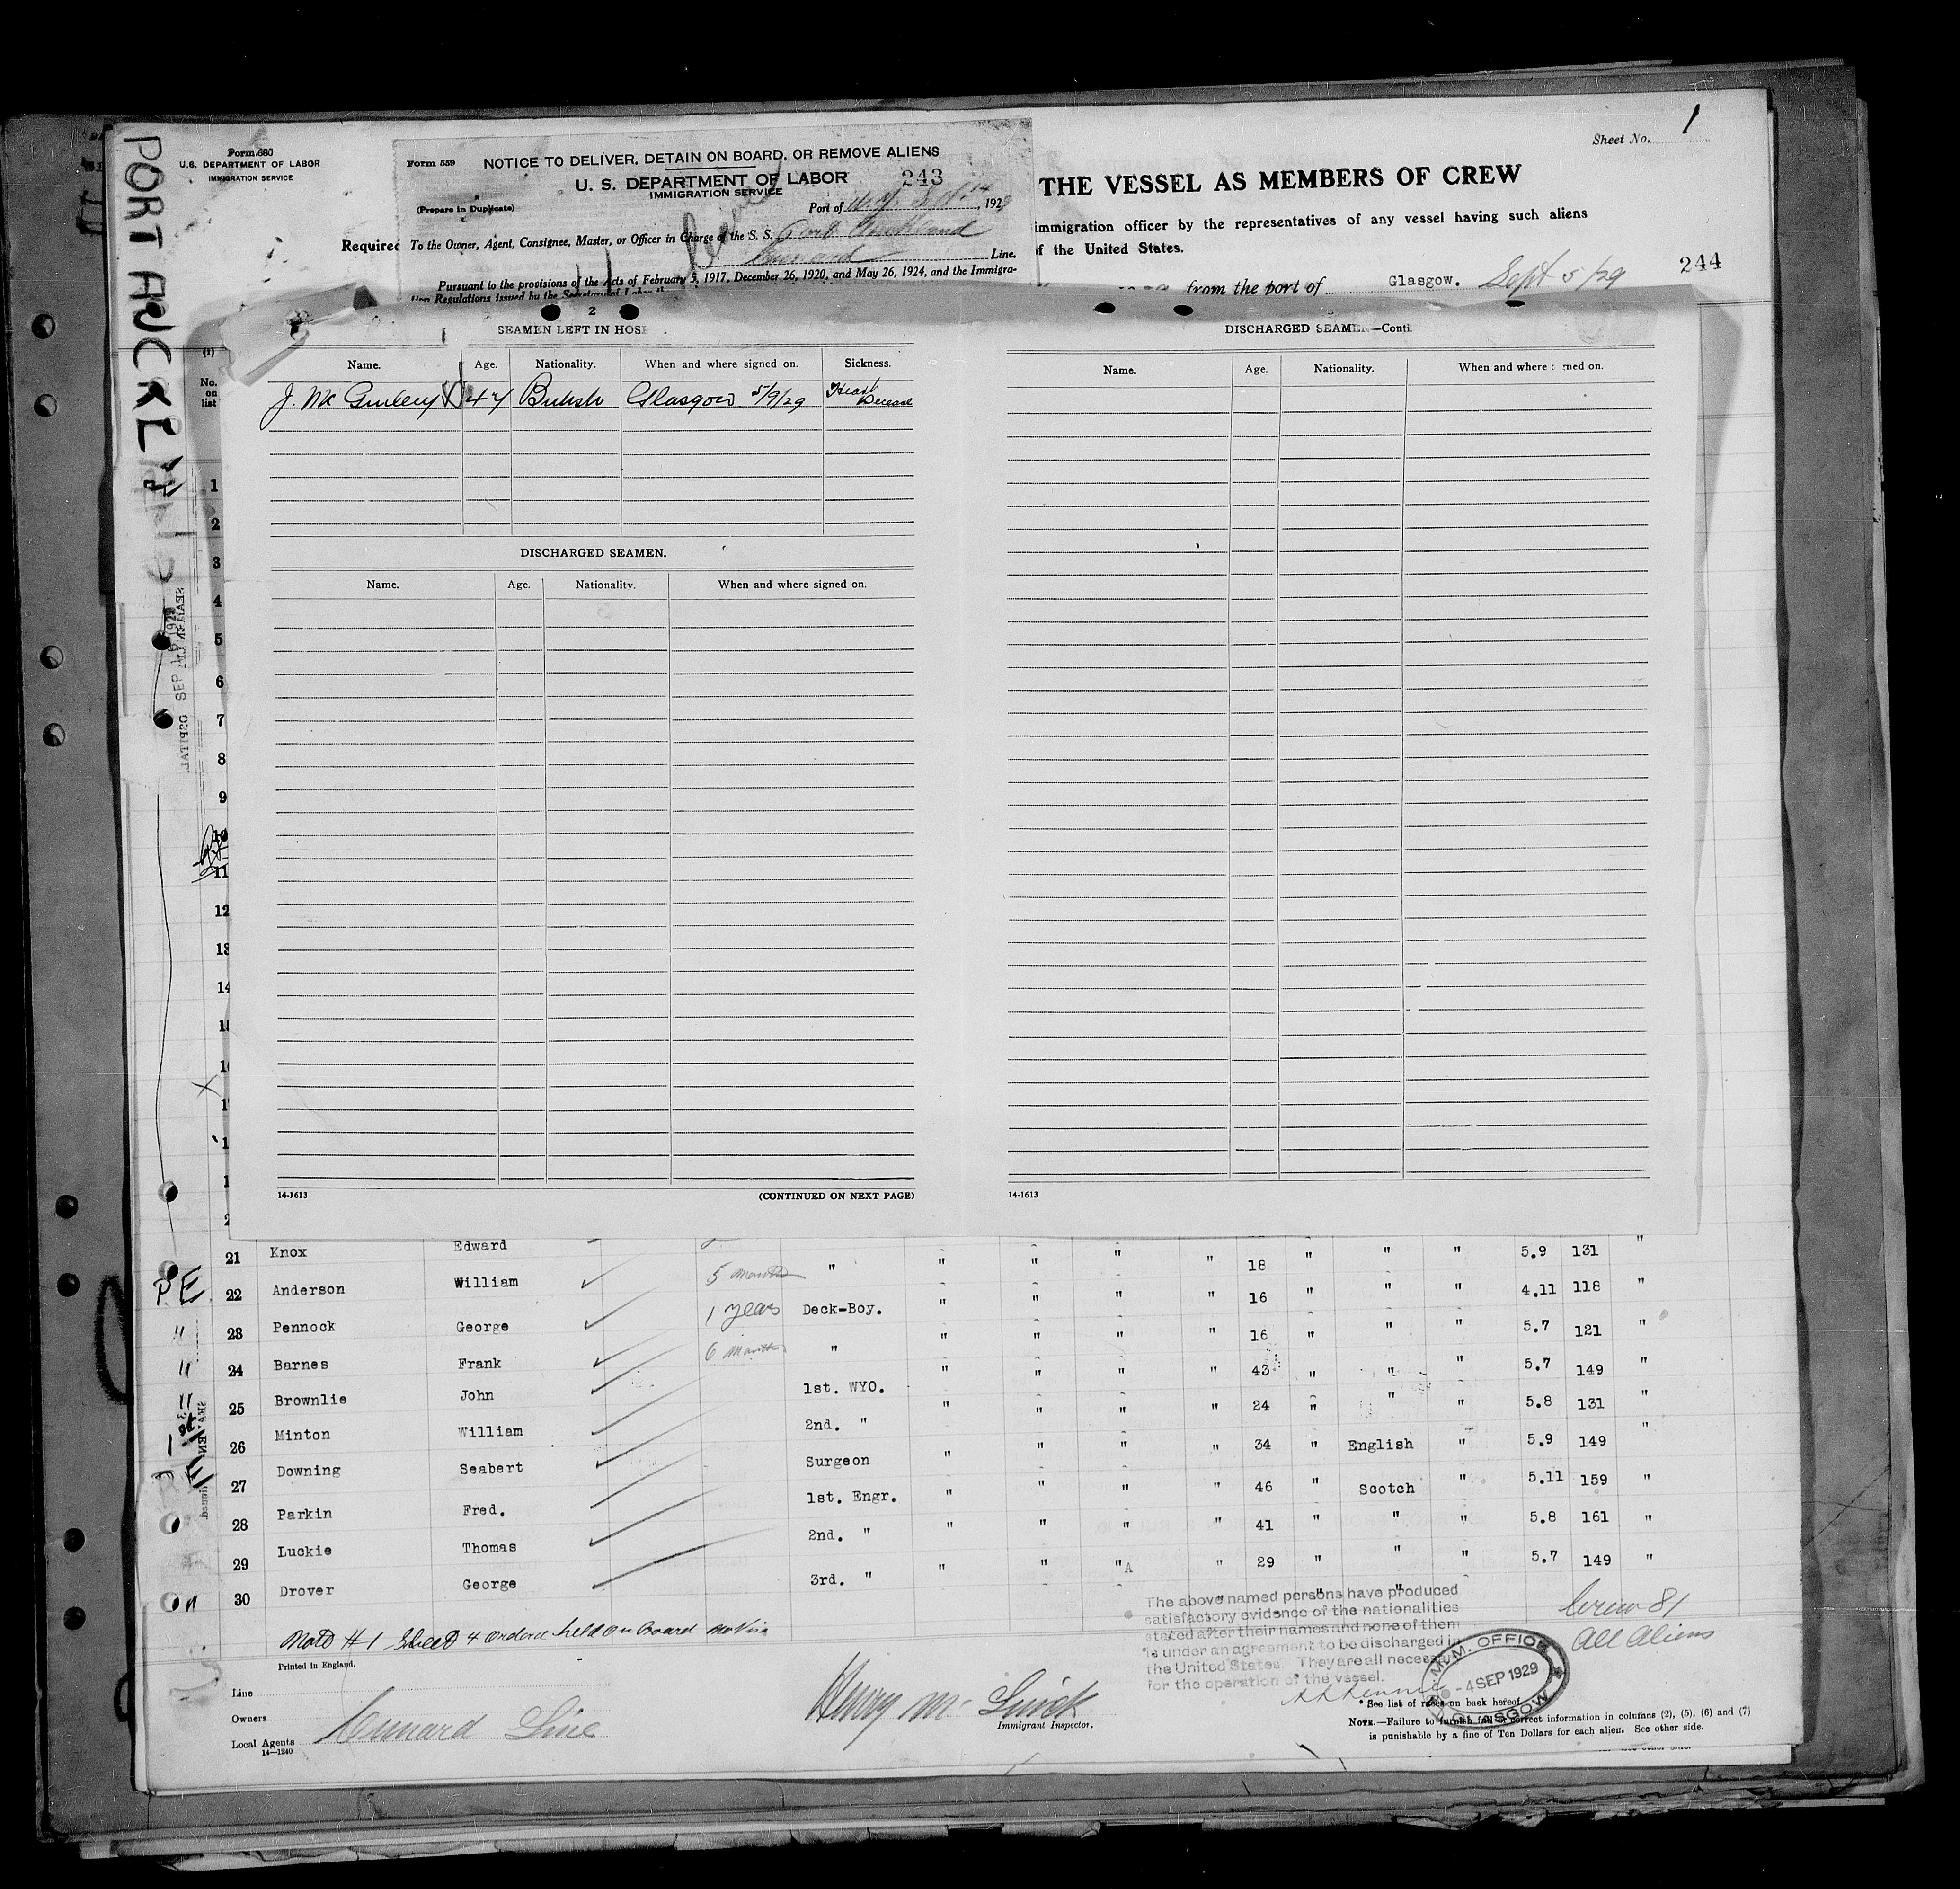 PORT AUCKL'
Form 680
U.S. DEPARTMENT OF LABOR
IMMIGRATION SERVICE
Sheet No. 1
Form 559
NOTICE TO DELIVER, DETAIN ON BOARD, OR REMOVE ALIENS
U. S. DEPARTMENT OF LABOR
IMMIGRATION SERVICE
243
(Prepare in Duplicate)
Port of 192
To the Owner, Agent, Consignee, Master, or Officer in Charge of the S. S. Port Auckland
Cunard Line.
Pursuant to the provisions of the Acts of February 5, 1917, December 26, 1920, and May 26, 1924, and the Immigra-
tion Regulations issued by the Secretary of Labor
THE VESSEL AS MEMBERS OF CREW
Required
immigration officer by the representatives of any vessel having such aliens
of the United States.
from the port of Glasgow. Sept 5/29
244
(1)
No. on list
2
SEAMEN LEFT IN HOSI
Name. Age. Nationality. When and where signed on. Sickness.
J. Mc Ginley 47 British Glasgow 5/9/29 Heart Disease
DISCHARGED SEAMEN.
Name. Age. Nationality. When and where signed on.
14-1613
(CONTINUED ON NEXT PAGE)
DISCHARGED SEAMEN—Conti
Name. Age. Nationality. When and where signed on.
14-1613
1
2
3
4
5
6
7
8
9
10
11
12
13
14
21 Knox Edward " " " " 5.9 131 "
22 Anderson William 5 months " " " " " 18 " " " 4.11 118 "
23 Pennock George 1 year Deck-Boy. " " " " 16 " " " 5.7 121 "
24 Barnes Frank 6 months " " " " " 16 " " " 5.7 149 "
25 Brownlie John 1st. WYO. " " " " 43 " " " 5.8 131 "
26 Minton William 2nd. " " " " " 24 " " " 5.9 149 "
27 Downing Seabert Surgeon " " " " 34 " English " 5.11 159 "
28 Parkin Fred. 1st. Engr. " " " " 46 " Scotch " 5.8 161 "
29 Luckie Thomas 2nd. " " " " " 41 " " " 5.7 149 "
30 Drover George 3rd. " " " " " 29 " " "
P.E.
Note #1 Sheet 4 ordered held on board
The above named persons have produced
satisfactory evidence of the nationalities
stated after their names and none of them
is under an agreement to be discharged in
the United States. They are all necess
for the operation of the vessel.
Crew 81
All Aliens
M.M. OFFICE
-4 SEP 1929
GLASGOW
Printed in England.
Line
Owners
Local Agents Cunard Line
14—1240
Immigrant Inspector.
* See list of races on back hereof.
NOTE.—Failure to furnish full or correct information in columns (2), (5), (6) and (7)
is punishable by a fine of Ten Dollars for each alien. See other side.